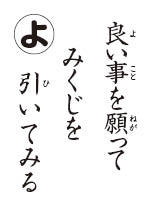 良い事を願って
みくじを
引いてみる
よ